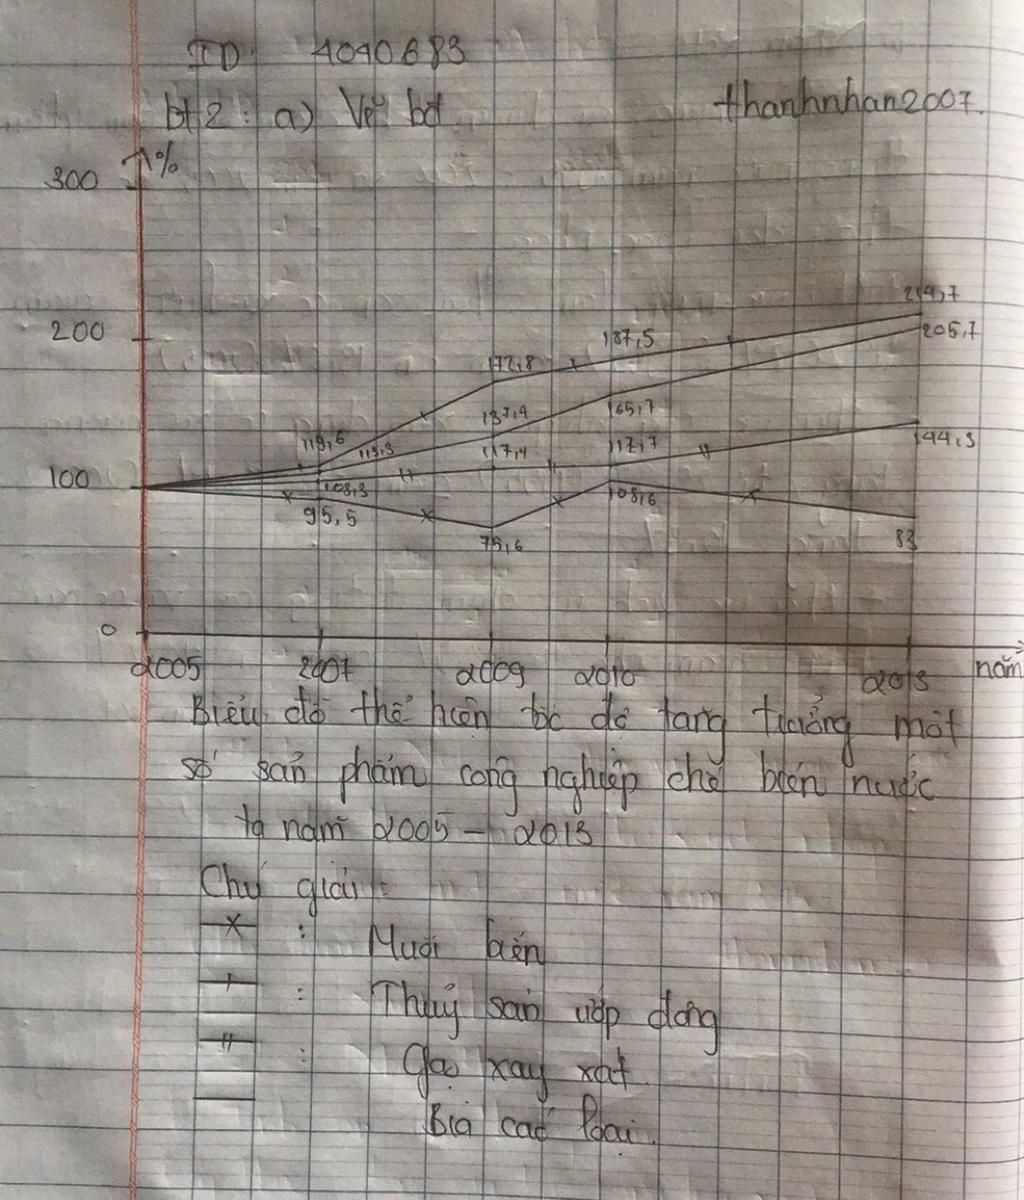 ID: 4040683
bt2: a) Vẽ bđ
thanhnhan2007.
%
300
214,7
200
187,5
205,7
172,8
137,4
165,7
119,6
115,3
117,4
117,7
144,3
100
108,3
108,6
95,5
75,6
83
0
2005 2007 2009 2010 2013 năm
Biểu đồ thể hiện tốc độ tăng trưởng một
số sản phẩm công nghiệp chế biến nước
ta năm 2005 - 2013
Chú giải:
: Muối biển
: Thuỷ sản ướp đông
: Gạo xay xát.
Bia các loại.